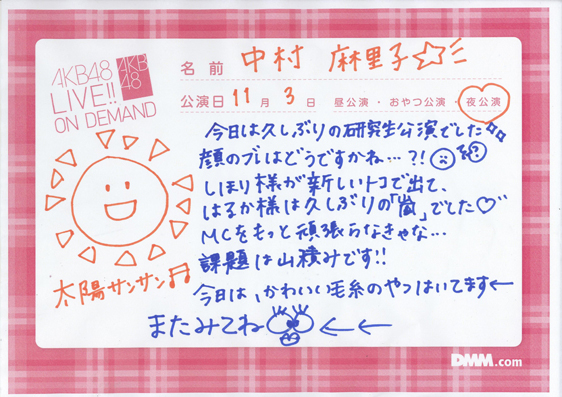 AKB48
LIVE!!
ON DEMAND
AKB
48
名前 中村 麻里子☆
公演日 11月 3日 昼公演・おやつ公演・夜公演
今日は久しぶりの研究生公演でした
顔のブレはどうですかね…?!
しほり様が新しいトコで出て、
はるか様は久しぶりの「嵐」でした♡
MCをもっと頑張らなきゃな…
課題は山積みです!!
今日は、かわいい毛糸のやつはいてます←
またみてね ←←
太陽サンサン♫
DMM.com